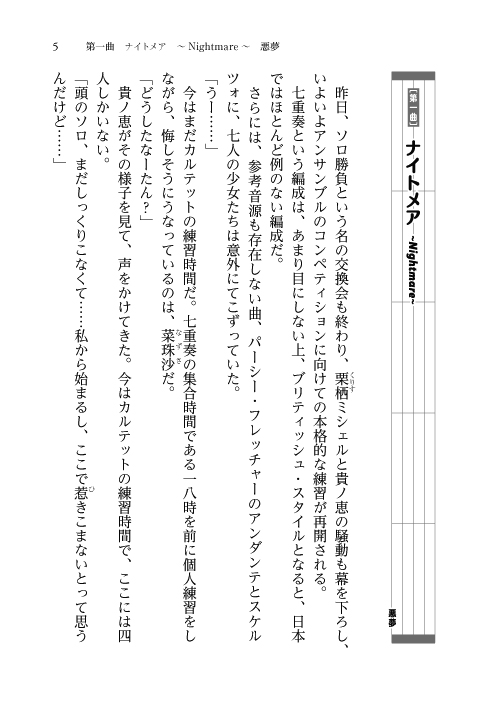 5　第一曲　ナイトメア　～Nightmare～　悪夢
［第一曲］ナイトメア～Nightmare～
悪夢
昨日、ソロ勝負という名の交換会も終わり、栗栖ミシェルと貴ノ恵の騒動も幕を下ろし、
くりす
いよいよアンサンブルのコンペティションに向けての本格的な練習が再開される。
七重奏という編成は、あまり目にしない上、ブリティッシュ・スタイルとなると、日本
ではほとんど例のない編成だ。
さらには、参考音源も存在しない曲、パーシー・フレッチャーのアンダンテとスケル
ツォに、七人の少女たちは意外にてこずっていた。
「うー……」
今はまだカルテットの練習時間だ。七重奏の集合時間である一八時を前に個人練習をし
ながら、悔しそうにうなっているのは、菜珠沙だ。
なずさ
「どうしたなーたん？」
貴ノ恵がその様子を見て、声をかけてきた。今はカルテットの練習時間で、ここには四
人しかいない。
「頭のソロ、まだしっくりこなくて……私から始まるし、ここで惹きこまないとって思う
ひ
んだけど……」